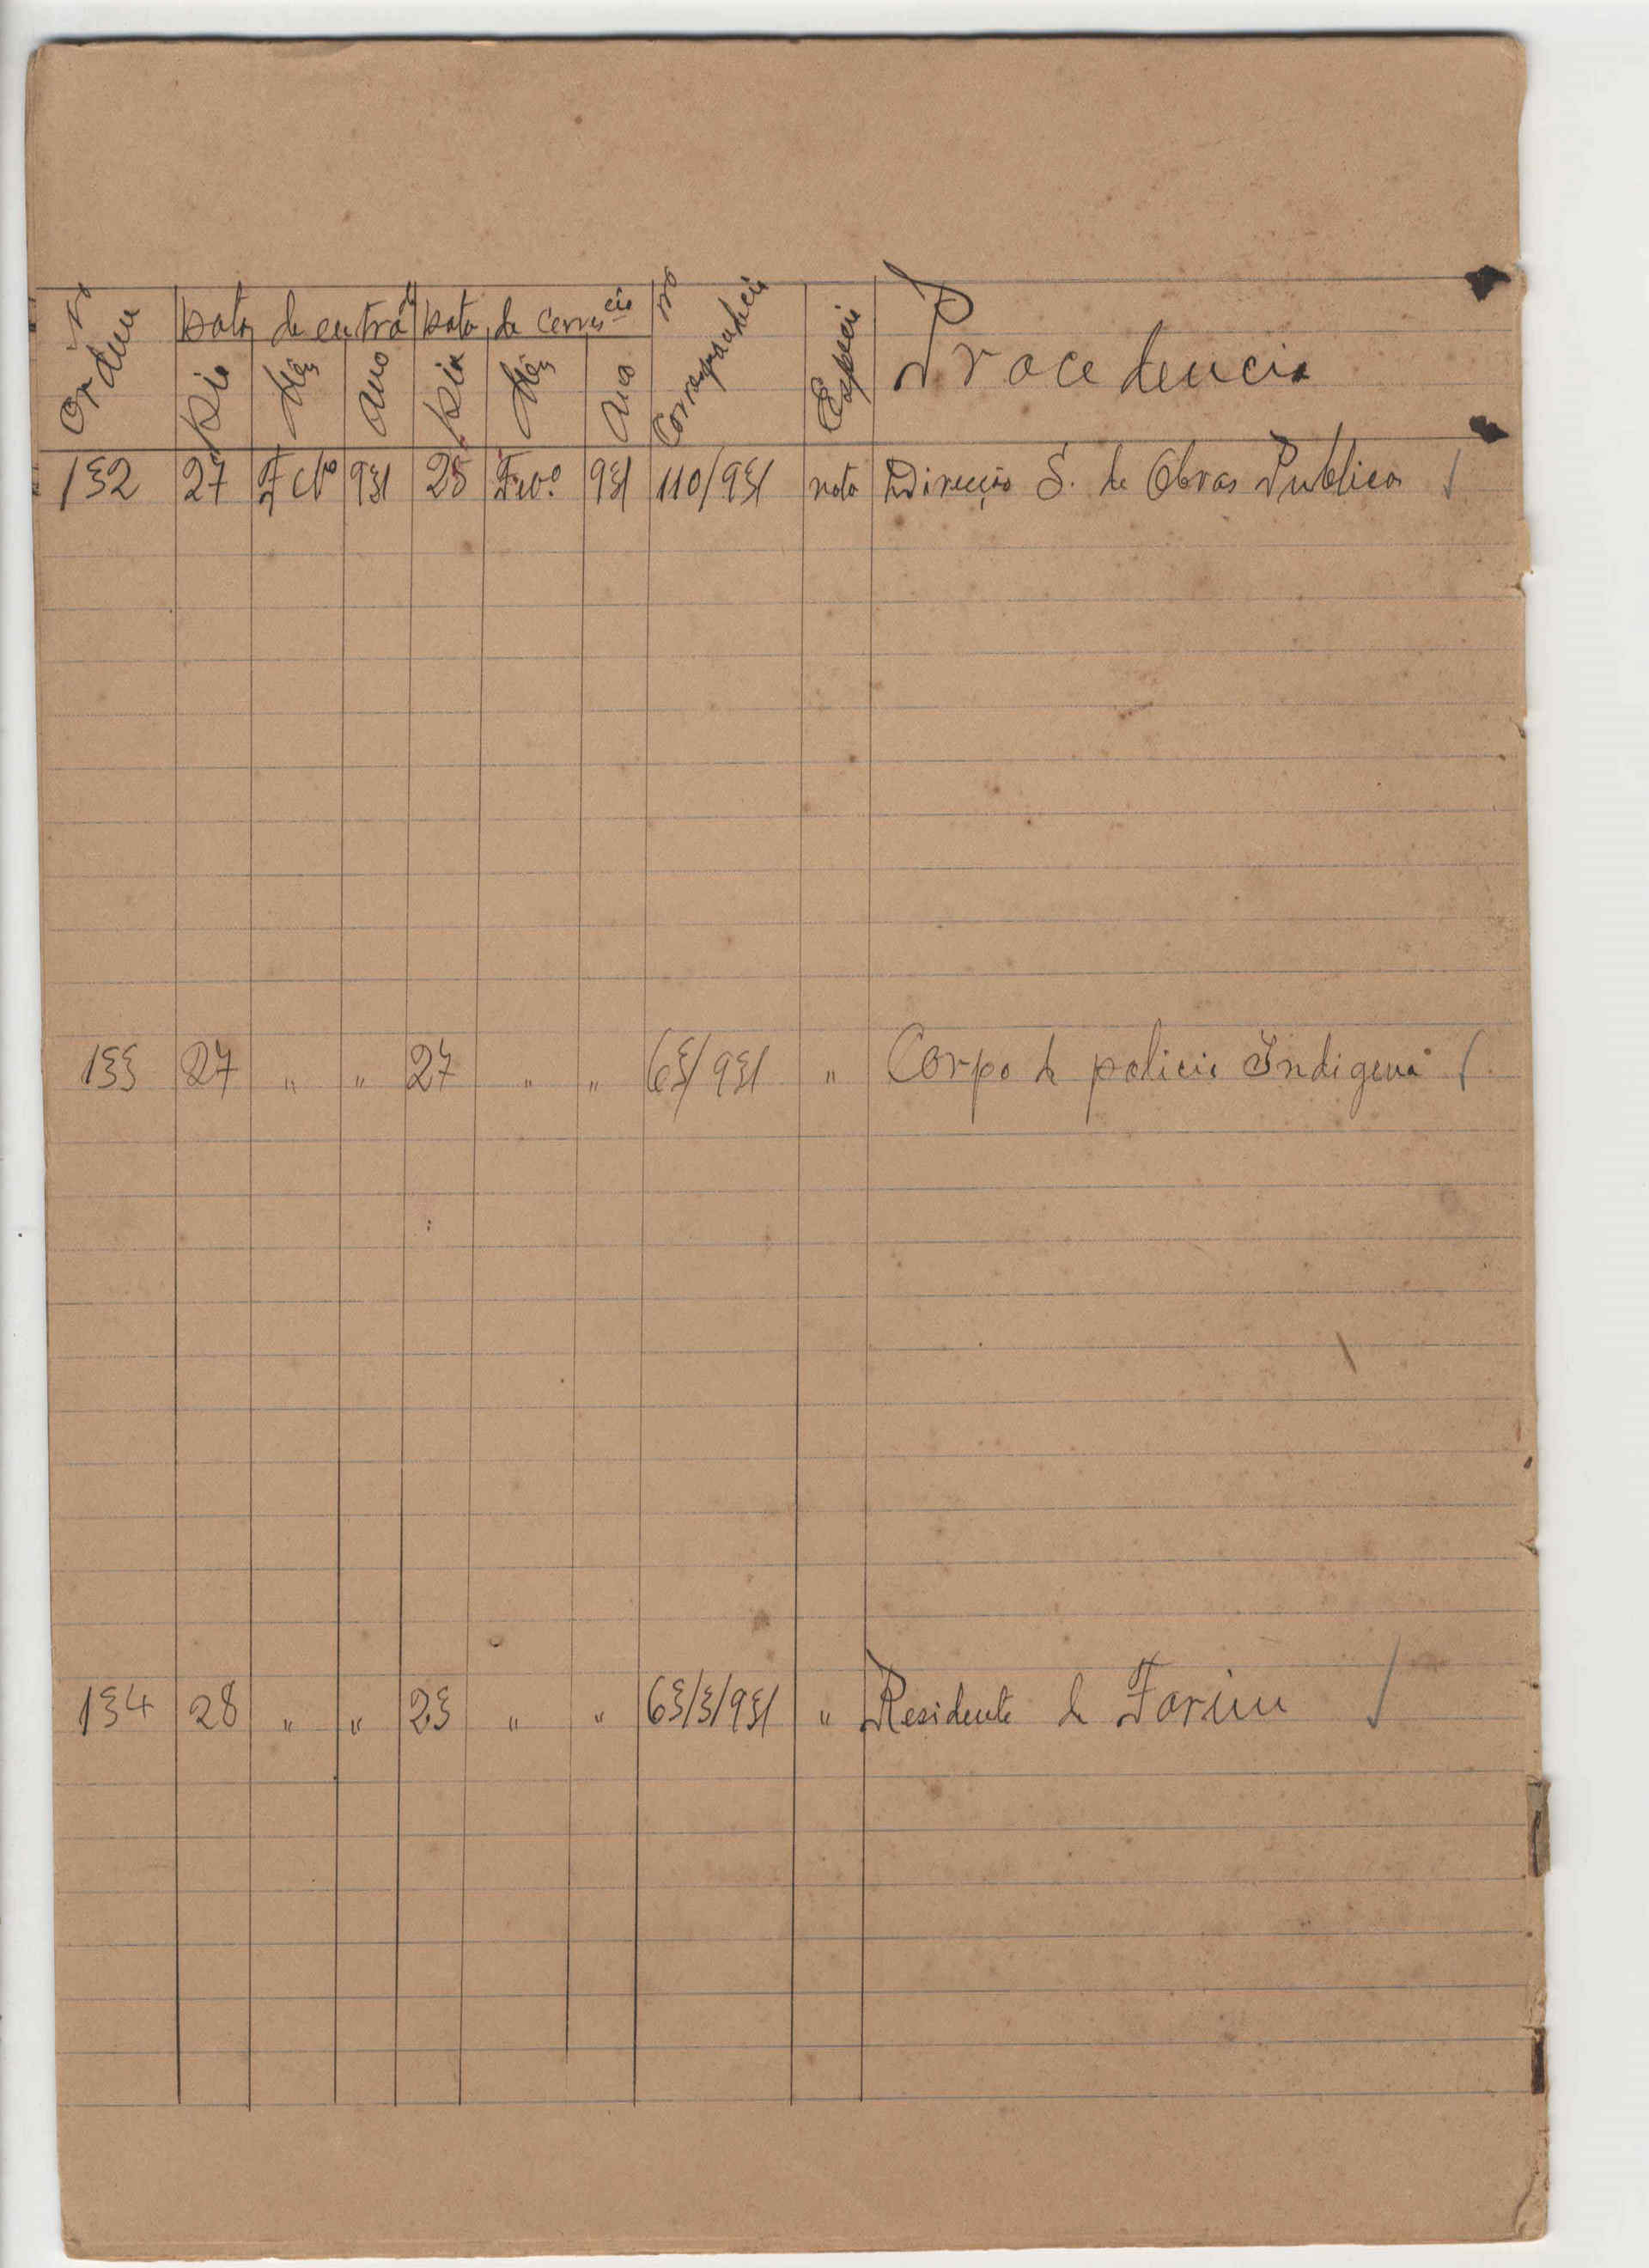 Nº Ordem Data de entrª Data de corresᶜⁱᵃ Nº Correspondencia Especie Procedencia
Dia Mês Ano Dia Mês Ano
132 27 Fevº 931 25 Fevº. 931 110/931 nota Direcção S. de Obras Publicas /
133 27 " " 27 " " 63/931 " Corpo de policia Indigena /
134 28 " " 23 " " 63/3/931 " Residente de Farim /